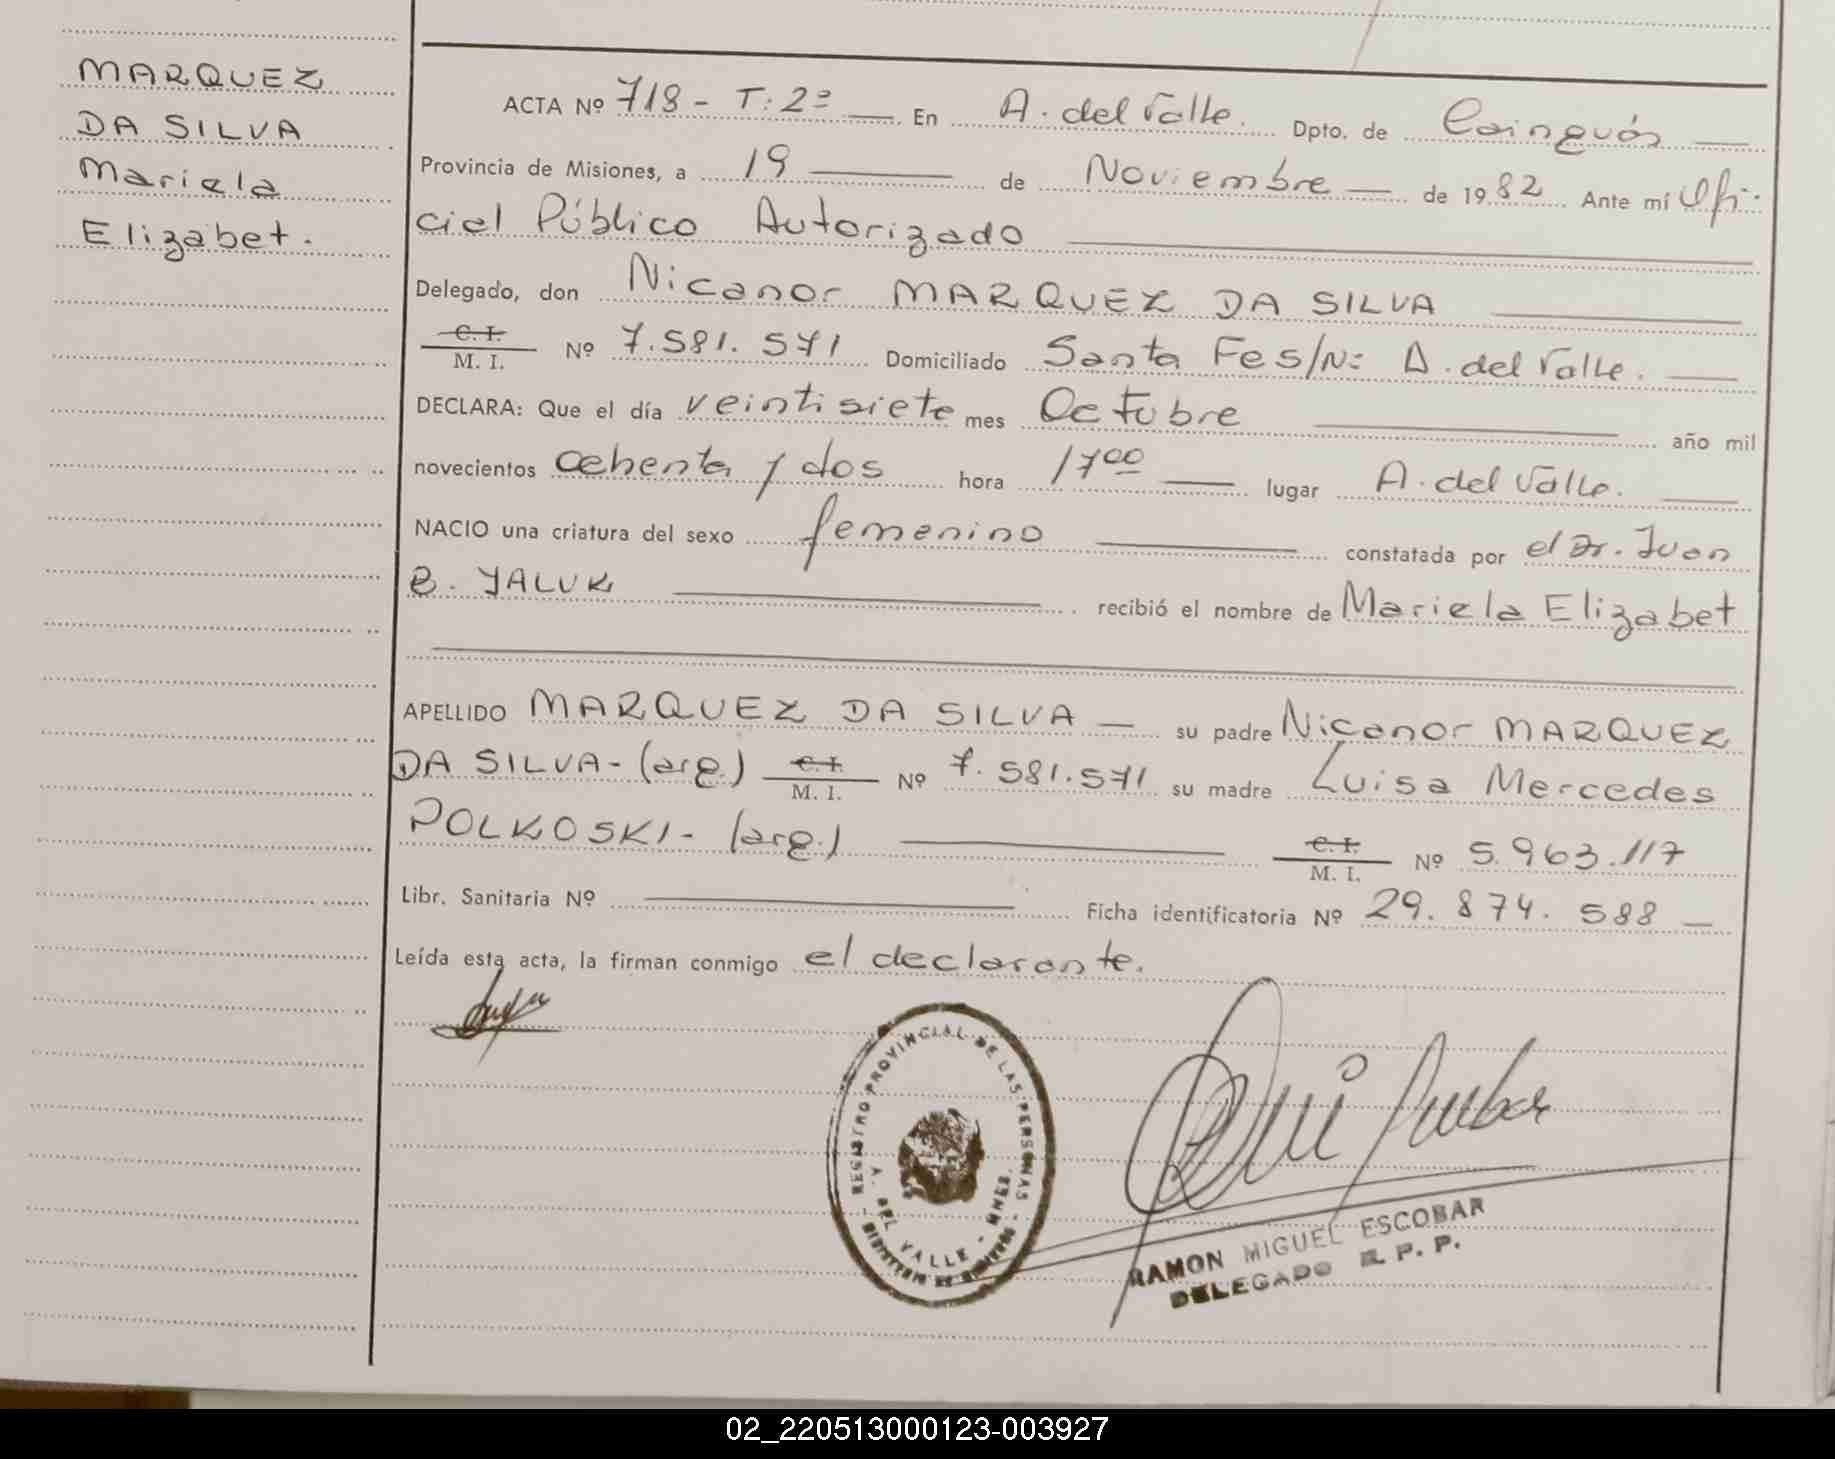 MARQUEZ
DA SILVA
Mariela
Elizabet.
ACTA Nº 718 - T: 2º En A. del Valle. Dpto. de Cainguás
Provincia de Misiones, a 19 de Noviembre de 1982 Ante mí Ofi-
ciel Público Autorizado
Delegado, don Nicanor MARQUEZ DA SILVA
C. I.
M. I. Nº 7.581.571 Domiciliado Santa Fe S/N: A. del Valle.
DECLARA: Que el día veintisiete mes Octubre año mil
novecientos ochenta y dos hora 17 00 lugar A. del Valle.
NACIO una criatura del sexo femenino constatada por el Dr. Juan
B. YALUK recibió el nombre de Mariela Elizabet
APELLIDO MARQUEZ DA SILVA su padre Nicanor MARQUEZ
DA SILVA - (arg.) C. I. M. I. Nº 7.581.571 su madre Luisa Mercedes
POLKOSKI - (arg.) C. I. M. I. Nº 5.963.117
Libr. Sanitaria Nº Ficha identificatoria Nº 29.874.588
Leída esta acta, la firman conmigo el declarante.
REGISTRO PROVINCIAL DE LAS PERSONAS
A. DEL VALLE - MNES.
RAMON MIGUEL ESCOBAR
DELEGADO R. P. P.
02_220513000123-003927